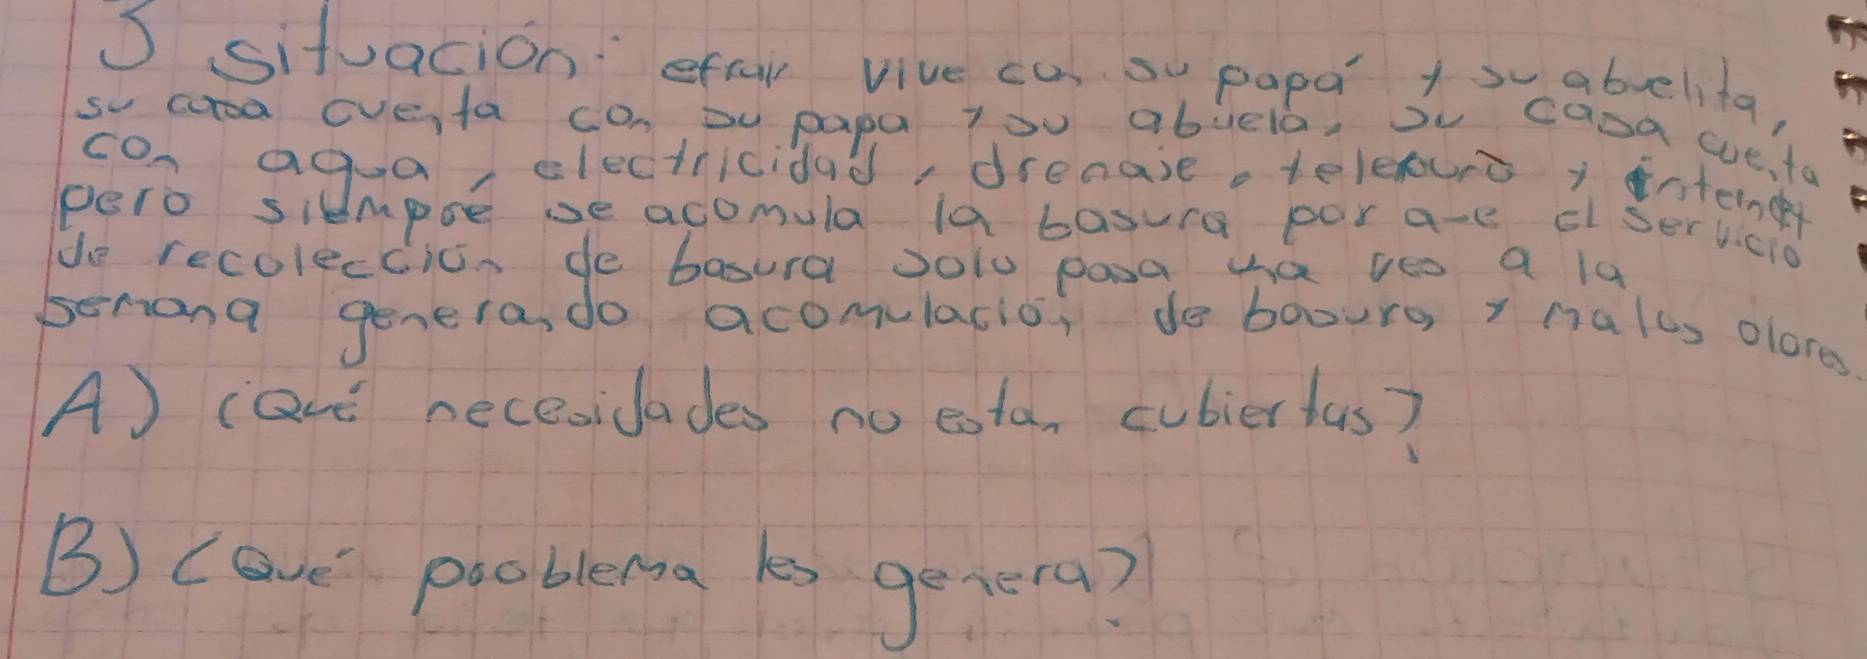 3 situación: efrain vive con su papá y su abuelita,
su casa cuenta con su papa y su abuela, su casa cuenta
con agua, electricidad, drenaje, telefono y internet
pero siempre se acomula la basura por que el servicio
de recolección de basura solo pasa una ves a la
semana generando acomulación de basura y malos olores.
A) ¿Qué necesidades no estan cubiertas?
B) ¿Qué problema les genera?